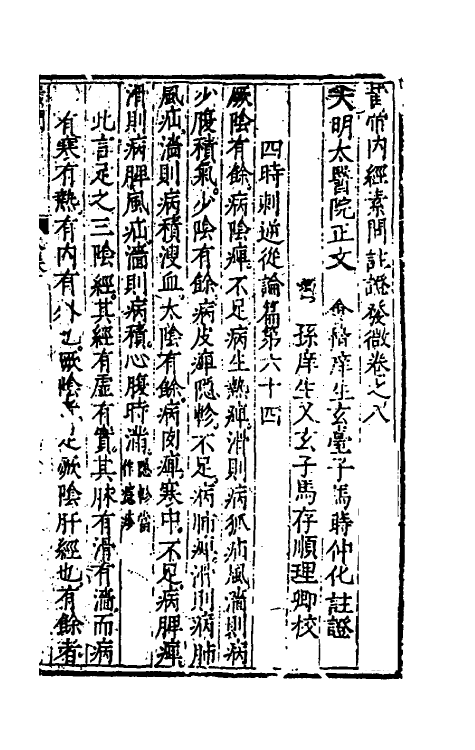 黃帝內經素問註證發微卷之八
大明太醫院正文 會稽庠生玄臺子馬蒔仲化註證
孫庠生又玄子馬存順理卿校
四時刺逆從論篇第六十四
厥陰有餘病陰痺不足病生熱痺滑則病狐疝風濇則病
少腹積氣少陰有餘病皮痺隱軫不足病肺痺滑則病肺
風疝濇則病積溲血太陰有餘病肉痺寒中不足病脾痺
滑則病脾風疝濇則病積心腹時滿隱軫當作癮疹
此言足之三陰經其經有虛有實其脉有滑有濇而病
有寒有熱有內有外也厥陰者足厥陰肝經也有餘者